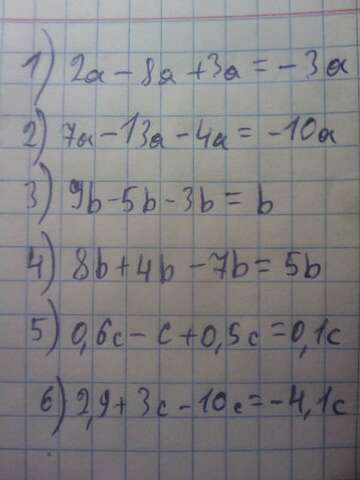 1) 2a - 8a + 3a = - 3a
2) 7a - 13a - 4a = -10a
3) 9b - 5b - 3b = b
4) 8b + 4b - 7b = 5b
5) 0,6c - c + 0,5c = 0,1c
6) 2,9 + 3c - 10c = -4,1c